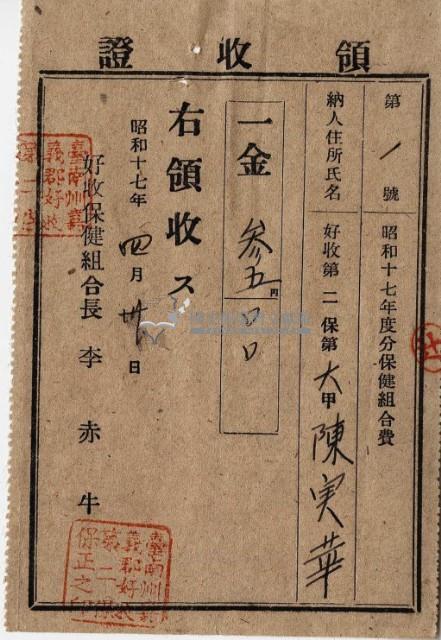 領收證
第 1 號 昭和十七年度分保健組合費
納人住所氏名 好收第二保第六甲 陳実華
一金 参五円
右領收ス
昭和十七年四月 日
好收保健組合長 李赤牛
臺南州嘉
義郡好收
臺南州嘉
義郡好收
第二保
保正之印